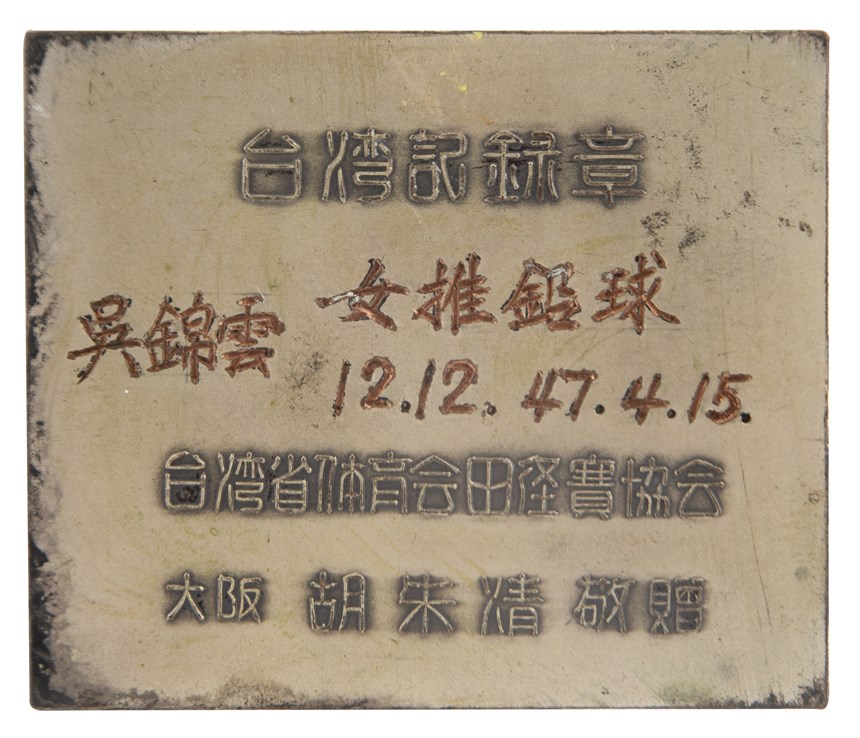 台湾記録章
女推鉛球
吳錦雲
12.12. 47.4.15.
台湾省体育会田径賽協会
大阪 胡朱清 敬贈